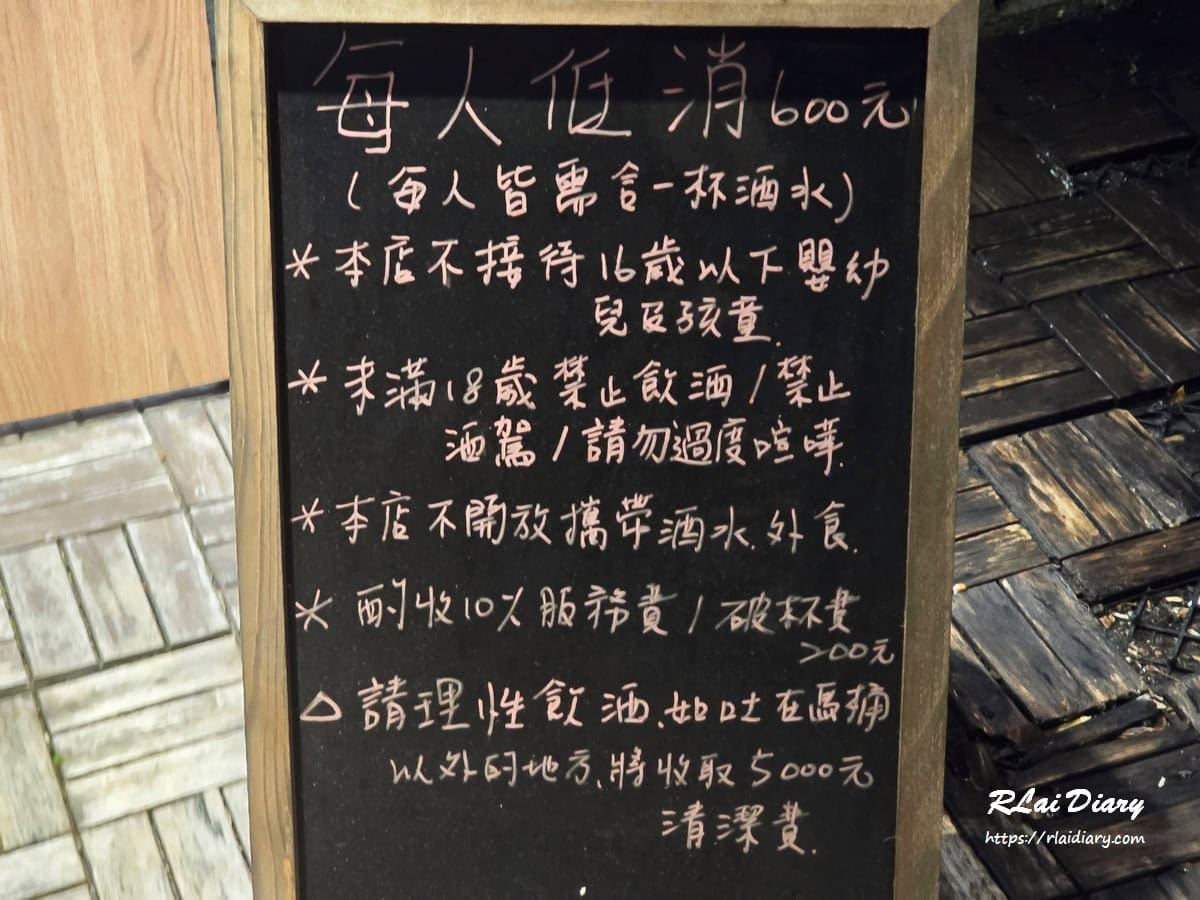 每人低消600元
(每人皆需含一杯酒水)
*本店不接待16歲以下嬰幼
兒及孩童.
*未滿18歲禁止飲酒/禁止
酒駕/請勿過度喧嘩.
*本店不開放攜帶酒水.外食.
*酌收10%服務費/破杯費
200元
△請理性飲酒.如吐在馬桶
以外的地方.將收取5000元
清潔費.
RLai Diary
https://rlaidiary.com